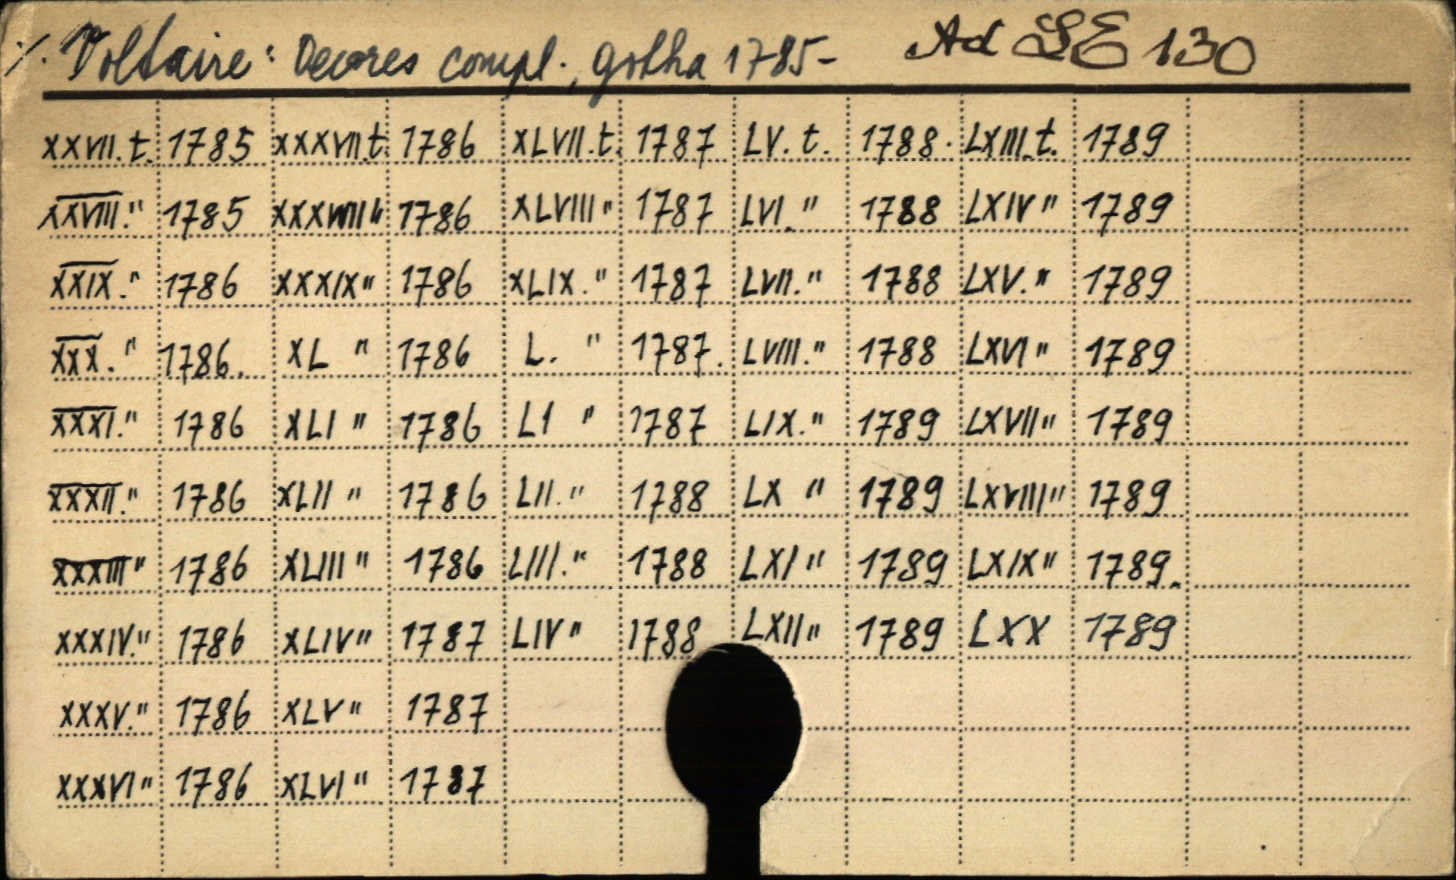 ·/· Voltaire: Oevres compl., gotha 1785- Ad SE 130
XXVII. t. 1785 XXXVII t. 1786 XLVII. t. 1787 LV. t. 1788. LXIII. t. 1789
XXVIII. " 1785 XXXVIII " 1786 XLVIII " 1787 LVI. " 1788 LXIV " 1789
XXIX. " 1786 XXXIX " 1786 XLIX. " 1787 LVII. " 1788 LXV. " 1789
XXX. " 1786. XL " 1786 L. " 1787. LVIII. " 1788 LXVI " 1789
XXXI. " 1786 XLI " 1786 LI " 1787 LIX. " 1789 LXVII " 1789
XXXII. " 1786 XLII " 1786 LII. " 1788 LX " 1789 LXVIII " 1789
XXXIII " 1786 XLIII " 1786 LIII. " 1788 LXI " 1789 LXIX " 1789.
XXXIV. " 1786 XLIV " 1787 LIV " 1788 LXII " 1789 LXX 1789
XXXV. " 1786 XLV " 1787
XXXVI " 1786 XLVI " 1787